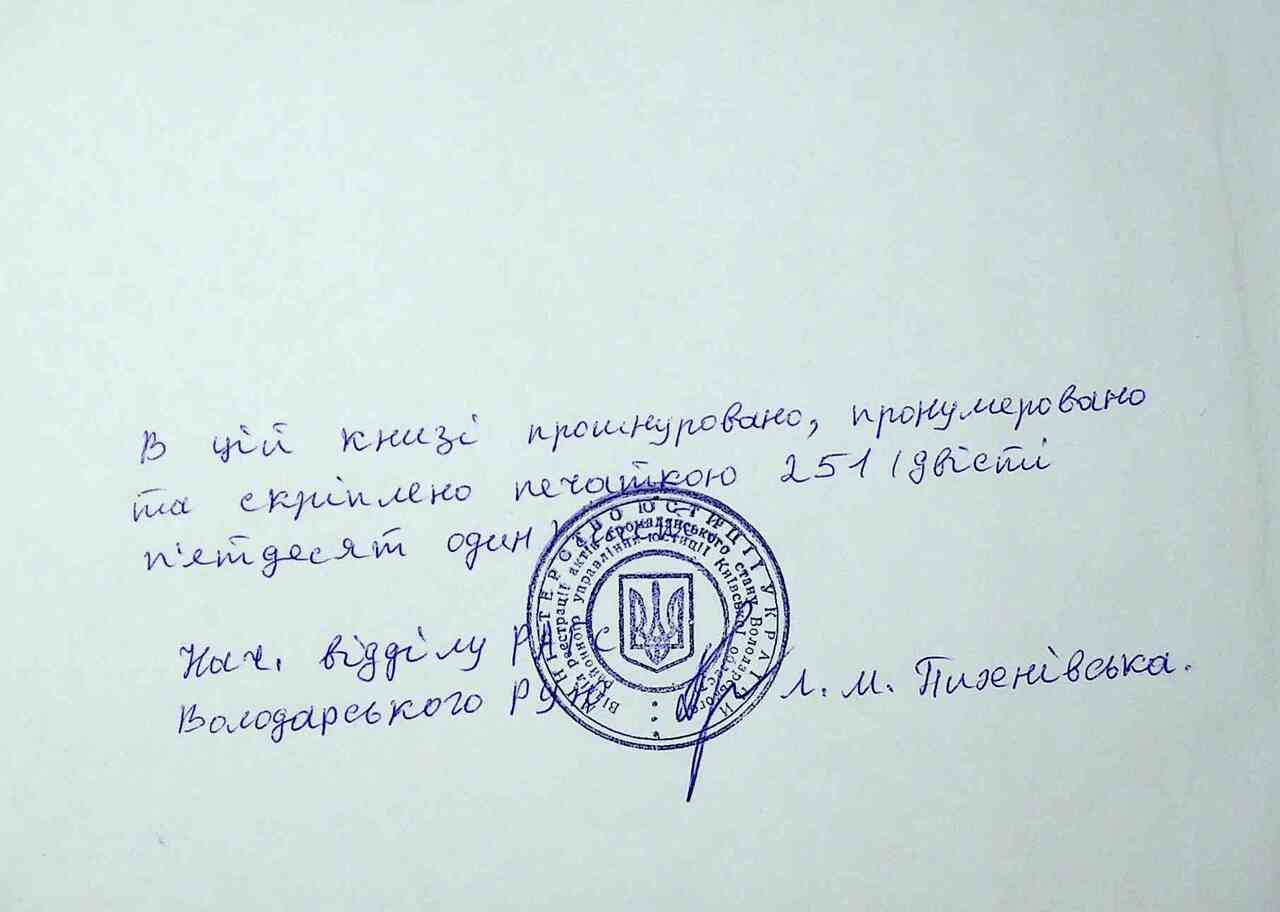 В цій книзі прошнуровано, пронумеровано
та скріплено печаткою 251 (двісті
п'ятдесят один)
Нач. відділу РАЦС
Володарського РУЮ Л. М. Пихнівська.
МІНІСТЕРСТВО ЮСТИЦІЇ УКРАЇНИ
Відділ реєстрації актів громадянського стану Володарського
районного управління юстиції Київської області